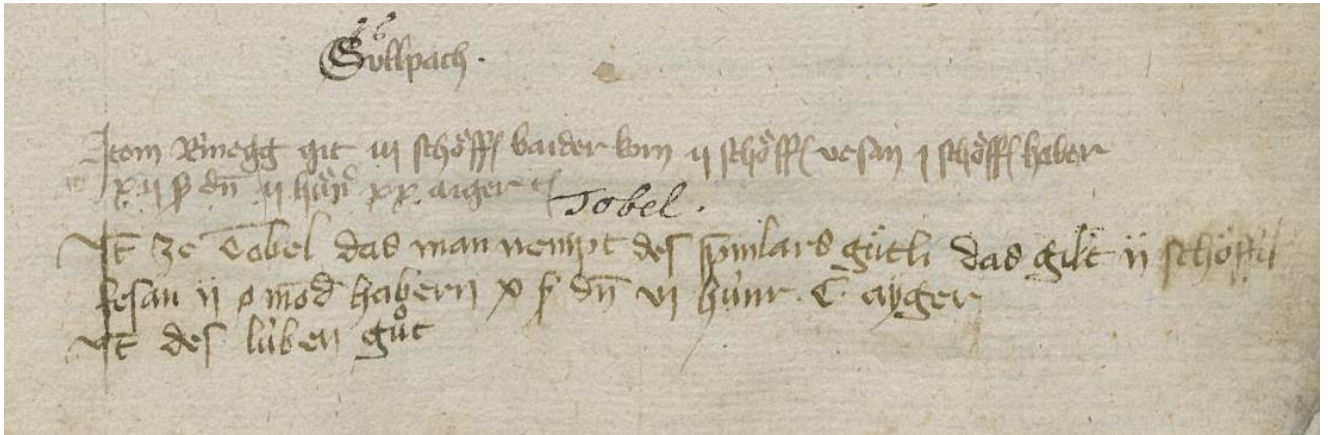 Sullpach.
Item Rinegg git iij schöff baider korn ij schöff vesan j schöff haber
x ij ß dn̄ ij hůnr xx aiger
Tobel.
It ze Tobel das man nempt des spinlars gütli das gilt ij schöffel
fesan ij mod habern x ß dn̄ vj hünr. C. ayger
It des lüben gůt